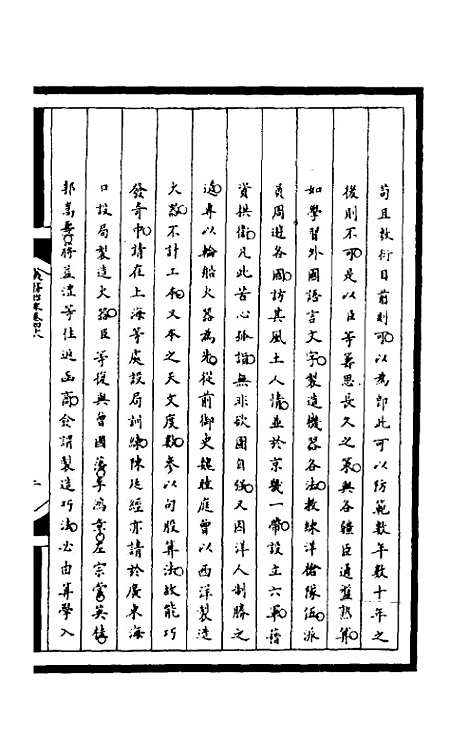 苟且敷衍目前則可以為即此可以防範數年數十年之
後則不可是以臣等籌思長久之策與各疆臣通盤熟算
如學習外國語言文字製造機器各法教練洋槍隊伍派
員周遊各國訪其風土人情並於京畿一帶設立六軍藉
資拱衛凡此苦心孤詣無非欲圖自強又因洋人制勝之
道專以輪船火器為先從前御史魏睦庭曾以西洋製造
火器不計工本又本之天文度數參以句股算法故能巧
發奇中請在上海等處設局訓練陳廷經亦請於廣東海
口設局製造火器臣等復與曾國藩李鴻章左宗棠英桂
郭嵩燾蔣益澧等往返函商僉謂製造巧法必由算學入
籌辦夷務卷四十八